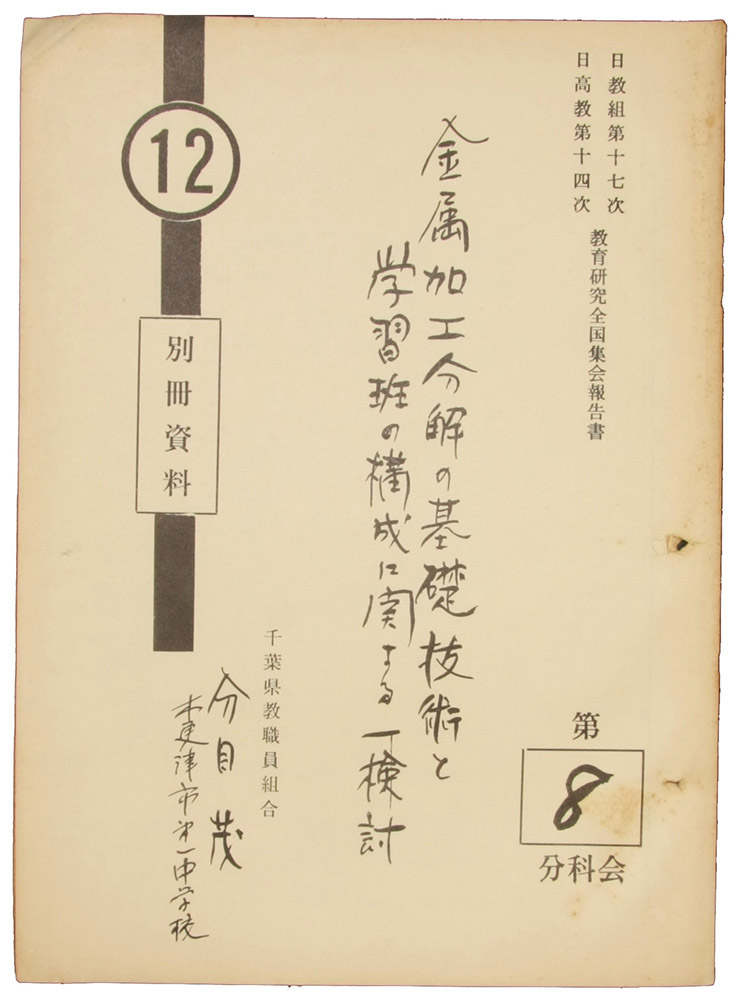 日教組第十七次
日高教第十四次
教育研究全国集会報告書
第
8
分科会
金属加工分解の基礎技術と
学習班の構成に関する一検討
千葉県教職員組合
分目茂
木更津市第一中学校
12
別冊資料